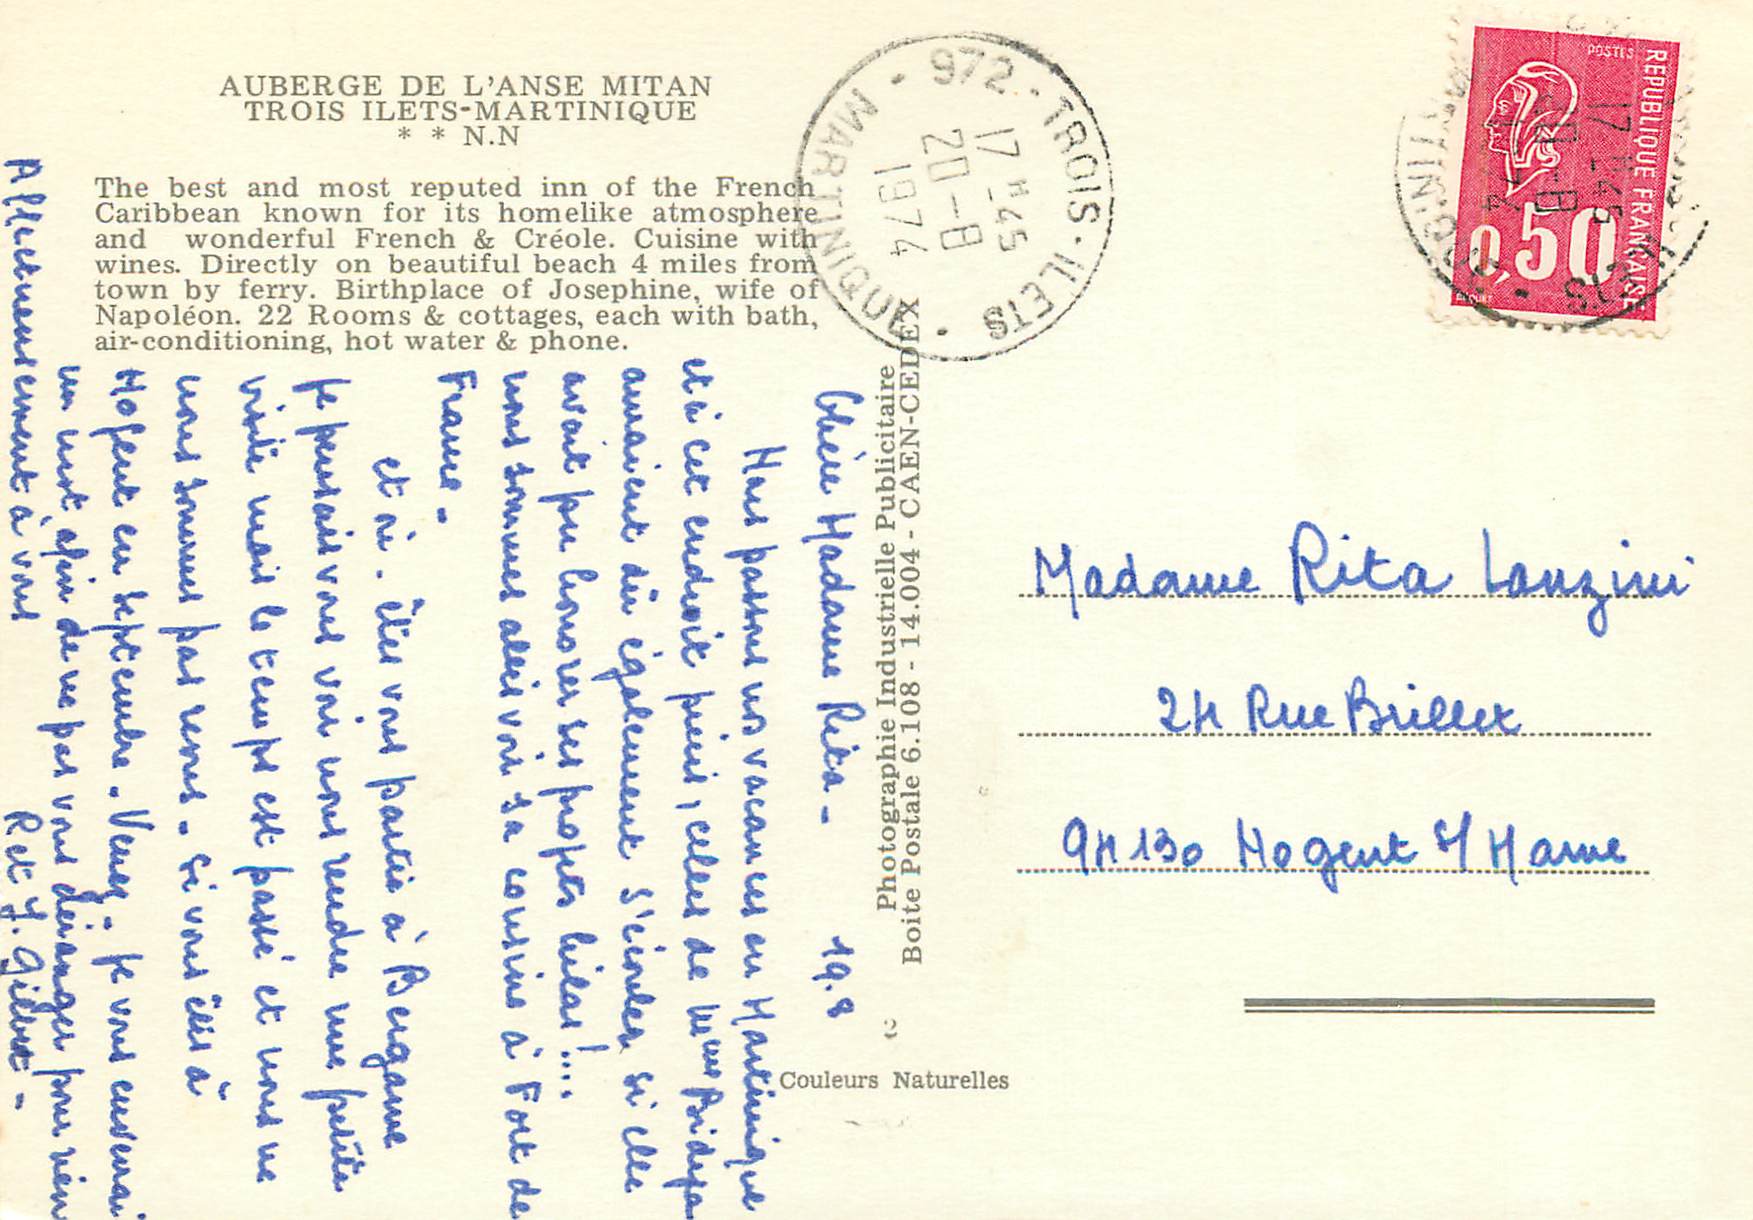 AUBERGE DE L'ANSE MITAN
TROIS ILETS-MARTINIQUE
* * N.N
The best and most reputed inn of the French
Caribbean known for its homelike atmosphere
and wonderful French & Créole. Cuisine with
wines. Directly on beautiful beach 4 miles from
town by ferry. Birthplace of Josephine, wife of
Napoléon. 22 Rooms & cottages, each with bath,
air-conditioning, hot water & phone.
972 - TROIS-ILETS - MARTINIQUE -
17 H - 45
20 - 8
1974
POSTES
REPUBLIQUE FRANÇAISE
0,50
17 H 45
Chère Madame Rita - 19.8
Nous passons nos vacances en Martinique
et à cet endroit précis, celles de Mme
auraient dû également s'écouler si elle
avait pu honorer ses projets hélas!...
nous sommes allés voir sa cousine à Fort de
France -
et vs. êtes vous partie à Bergame
Je pensais vous voir nous rendre une petite
visite mais le temps est passé et nous ne
nous sommes pas revus - si vous êtes à
Nogent en septembre. Venez - je vous enverrai
un mot afin de ne pas vous déranger pour rien
Affectueusement à vous
R et J. Gilbert -
Photographie Industrielle Publicitaire
Boite Postale 6.108 - 14.004 - CAEN-CEDEX
Couleurs Naturelles
Madame Rita Lanzini
24 Rue Brillet
94130 Nogent s/ Marne